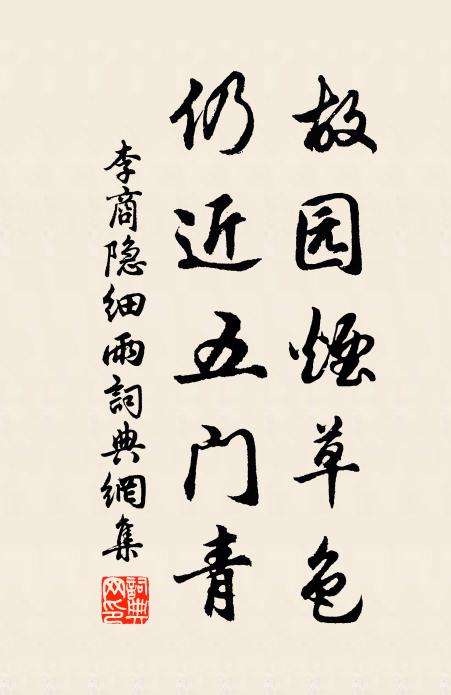 故园煙草色
仍近五门青
李商隐细雨詞典網集
詞典网印